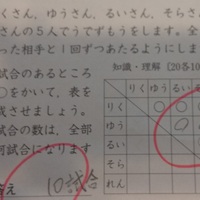 くさん、ゆうさん、るいさん、そらさ
さんの5人でうでずもうをします。全
った相手と1回ずつあたるようにしま
試合のあるところ
○をかいて、表を
成させましょう。
試合の数は、全部
試合になります
答え 10試合
知識・理解(20各10
りく ゆう るい
りく ○ ○
ゆう ○
るい
そら
れん